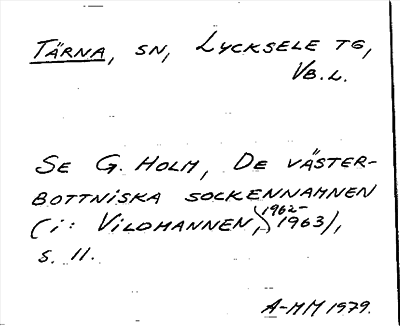 TÄRNA, SN, LYCKSELE TG,
VB. L.
SE G. HOLM, DE VÄSTER-
BOTTNISKA SOCKENNAMNEN
(i: VILDMANNEN, 1962-1963),
S. 11.
A-MM 1979.